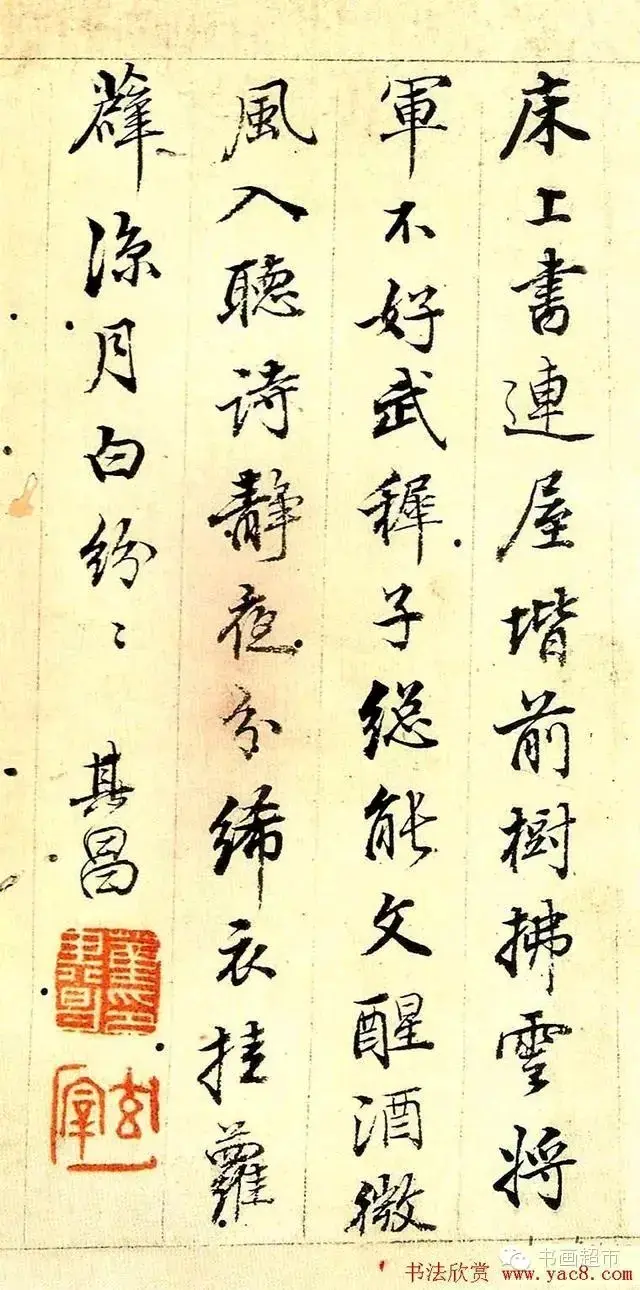 床上書連屋堦前樹拂雲將
軍不好武穉子總能文醒酒微
風入聽詩靜夜分絺衣挂蘿
薜涼月白紛〻 其昌
玄宰
书画超市
书法欣赏 www.yac8.com